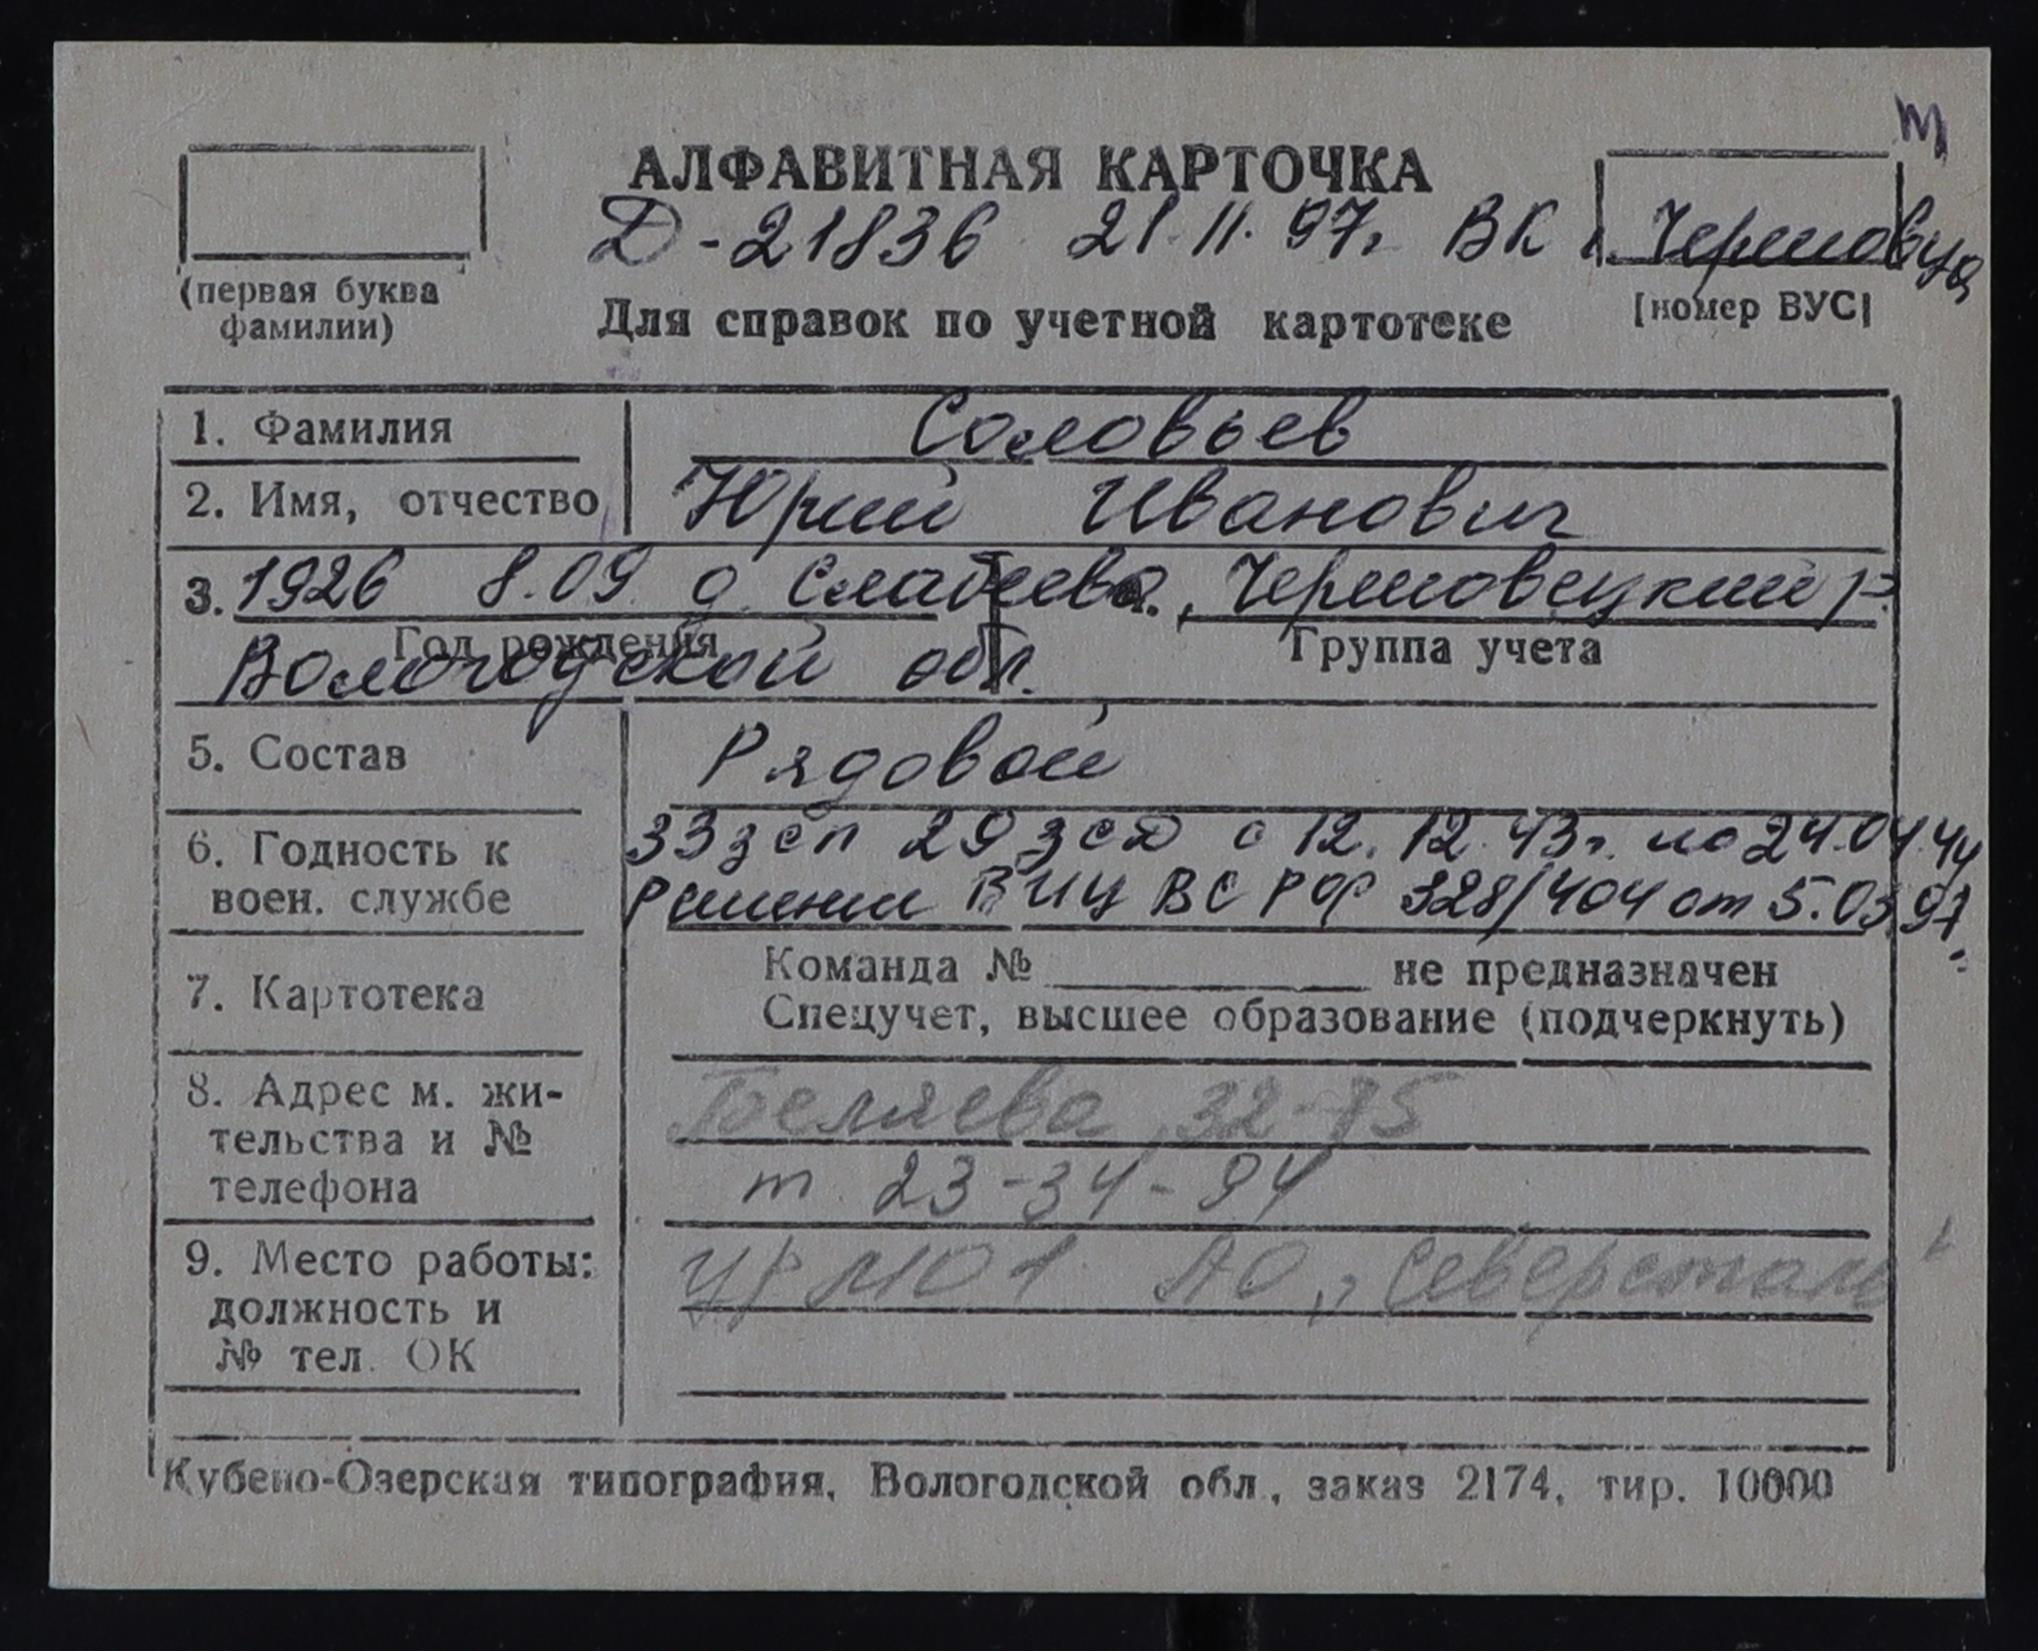 т
АЛФАВИТНАЯ КАРТОЧКА
Д-21836 21.11.97г. ВК г. Череповца
(первая буква фамилии)
Для справок по учетной картотеке
[номер ВУС]
1. Фамилия Соловьев
2. Имя, отчество Юрий Иванович
3. 1926 8.09 д. , Череповецкий р.
Год рождения Группа учета
Вологодской обл.
5. Состав Рядовой
6. Годность к воен. службе
33 зсп 29 зсд с 12.12.43г. по 24.04.44
Решении ВЧЦ ВС РФ 328/404 от 5.03.97.
7. Картотека
Команда № не предназначен
Спецучет, высшее образование (подчеркнуть)
8. Адрес м. жительства и № телефона
Беляева 32-75
т. 23-34-94
9. Место работы: должность и № тел. ОК
АО „Северсталь"
Кубено-Озерская типография, Вологодской обл., заказ 2174, тир. 10000